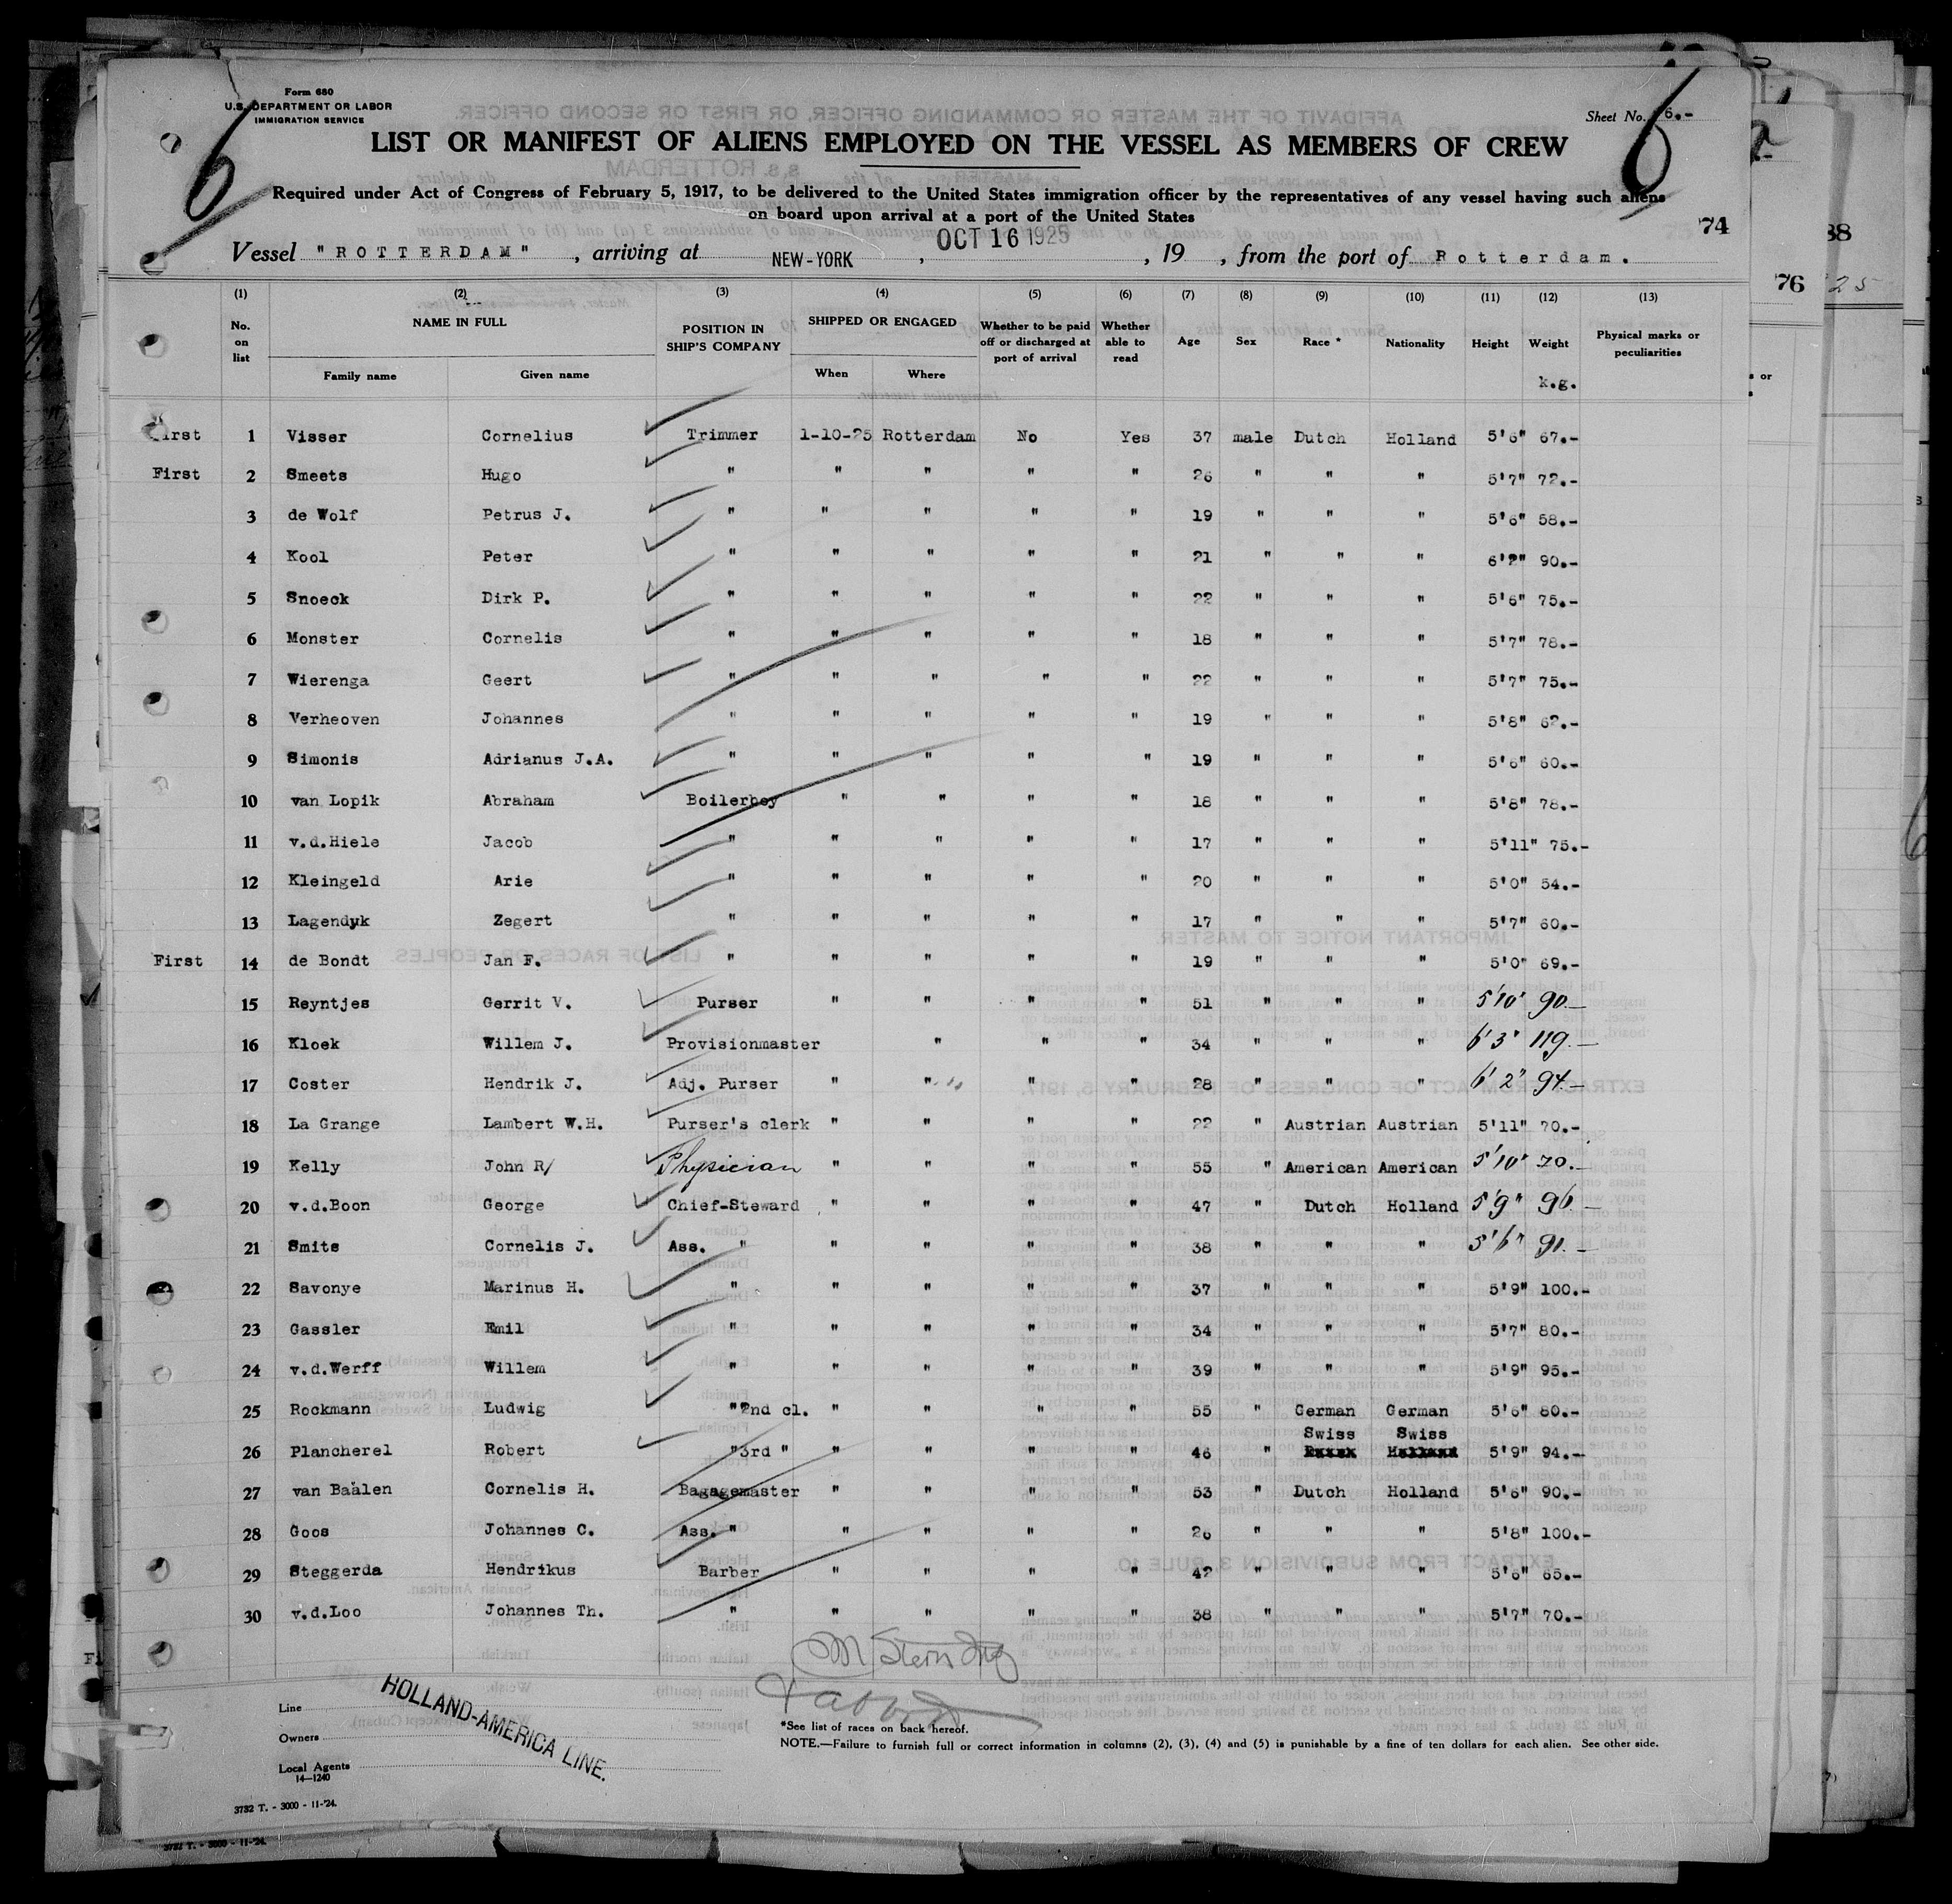 Form 680
U.S. DEPARTMENT OR LABOR
IMMIGRATION SERVICE
Sheet No. 6.-
6
6
LIST OR MANIFEST OF ALIENS EMPLOYED ON THE VESSEL AS MEMBERS OF CREW
Required under Act of Congress of February 5, 1917, to be delivered to the United States immigration officer by the representatives of any vessel having such aliens
on board upon arrival at a port of the United States
74
Vessel "ROTTERDAM", arriving at NEW-YORK, OCT 16 1925, 19 , from the port of Rotterdam.
(1) (2) (3) (4) (5) (6) (7) (8) (9) (10) (11) (12) (13)
No. on list NAME IN FULL POSITION IN SHIP'S COMPANY SHIPPED OR ENGAGED Whether to be paid off or discharged at port of arrival Whether able to read Age Sex Race * Nationality Height Weight Physical marks or peculiarities
Family name Given name When Where k.g.
First 1 Visser Cornelius Trimmer 1-10-25 Rotterdam No Yes 37 male Dutch Holland 5'6" 67.-
First 2 Smeets Hugo " " " " " 26 " " " 5'7" 72.-
3 de Wolf Petrus J. " " " " " 19 " " " 5'6" 58.-
4 Kool Peter " " " " " 21 " " " 6'2" 90.-
5 Snoeck Dirk P. " " " " " 22 " " " 5'6" 75.-
6 Monster Cornelis " " " " " 18 " " " 5'7" 78.-
7 Wierenga Geert " " " " " 22 " " " 5'7" 75.-
8 Verheoven Johannes " " " " " 19 " " " 5'8" 62.-
9 Simonis Adrianus J.A. " " " " " 19 " " " 5'6" 60.-
10 van Lopik Abraham Boilerboy " " " " 18 " " " 5'8" 78.-
11 v.d.Hiele Jacob " " " " " 17 " " " 5'11" 75.-
12 Kleingeld Arie " " " " " 20 " " " 5'0" 54.-
13 Lagendyk Zegert " " " " " 17 " " " 5'7" 60.-
First 14 de Bondt Jan F. " " " " " 19 " " " 5'0" 69.-
15 Reyntjes Gerrit V. Purser " " " " 51 " " " 5'10" 90.-
16 Kloek Willem J. Provisionmaster " " " 34 " " " 6'3" 119.-
17 Coster Hendrik J. Adj. Purser " " " " 28 " " " 6'2" 94.-
18 La Grange Lambert W.H. Purser's clerk " " " " 22 " Austrian Austrian 5'11" 70.-
19 Kelly John R/ Physician " " " " 55 " American American 5'10" 70.-
20 v.d.Boon George Chief-Steward " " " " 47 " Dutch Holland 5'9" 96.-
21 Smits Cornelis J. Ass. " " " " " 38 " " " 5'6" 91.-
22 Savonye Marinus H. " " " " " 37 " " " 5'9" 100.-
23 Gassler Emil " " " " " 34 " " " 5'7" 80.-
24 v.d.Werff Willem " " " " " 39 " " " 5'9" 95.-
25 Rockmann Ludwig "2nd cl. " " " " 55 " German German 5'6" 80.-
26 Plancherel Robert "3rd " " " " " 46 " Swiss Swiss 5'9" 94.-
27 van Baälen Cornelis H. Bagagemaster " " " " 53 " Dutch Holland 5'6" 90.-
28 Goos Johannes C. Ass. " " " " " 26 " " " 5'8" 100.-
29 Steggerda Hendrikus Barber " " " " 42 " " " 5'6" 65.-
30 v.d.Loo Johannes Th. " " " " " 38 " " " 5'7" 70.-
Line
Owners
Local Agents
HOLLAND-AMERICA LINE.
14—1240
*See list of races on back hereof.
NOTE.—Failure to furnish full or correct information in columns (2), (3), (4) and (5) is punishable by a fine of ten dollars for each alien. See other side.
3732 T. - 3000 - 11-'24.
3732 T. - 3000 - 11-'24.
88
76
25